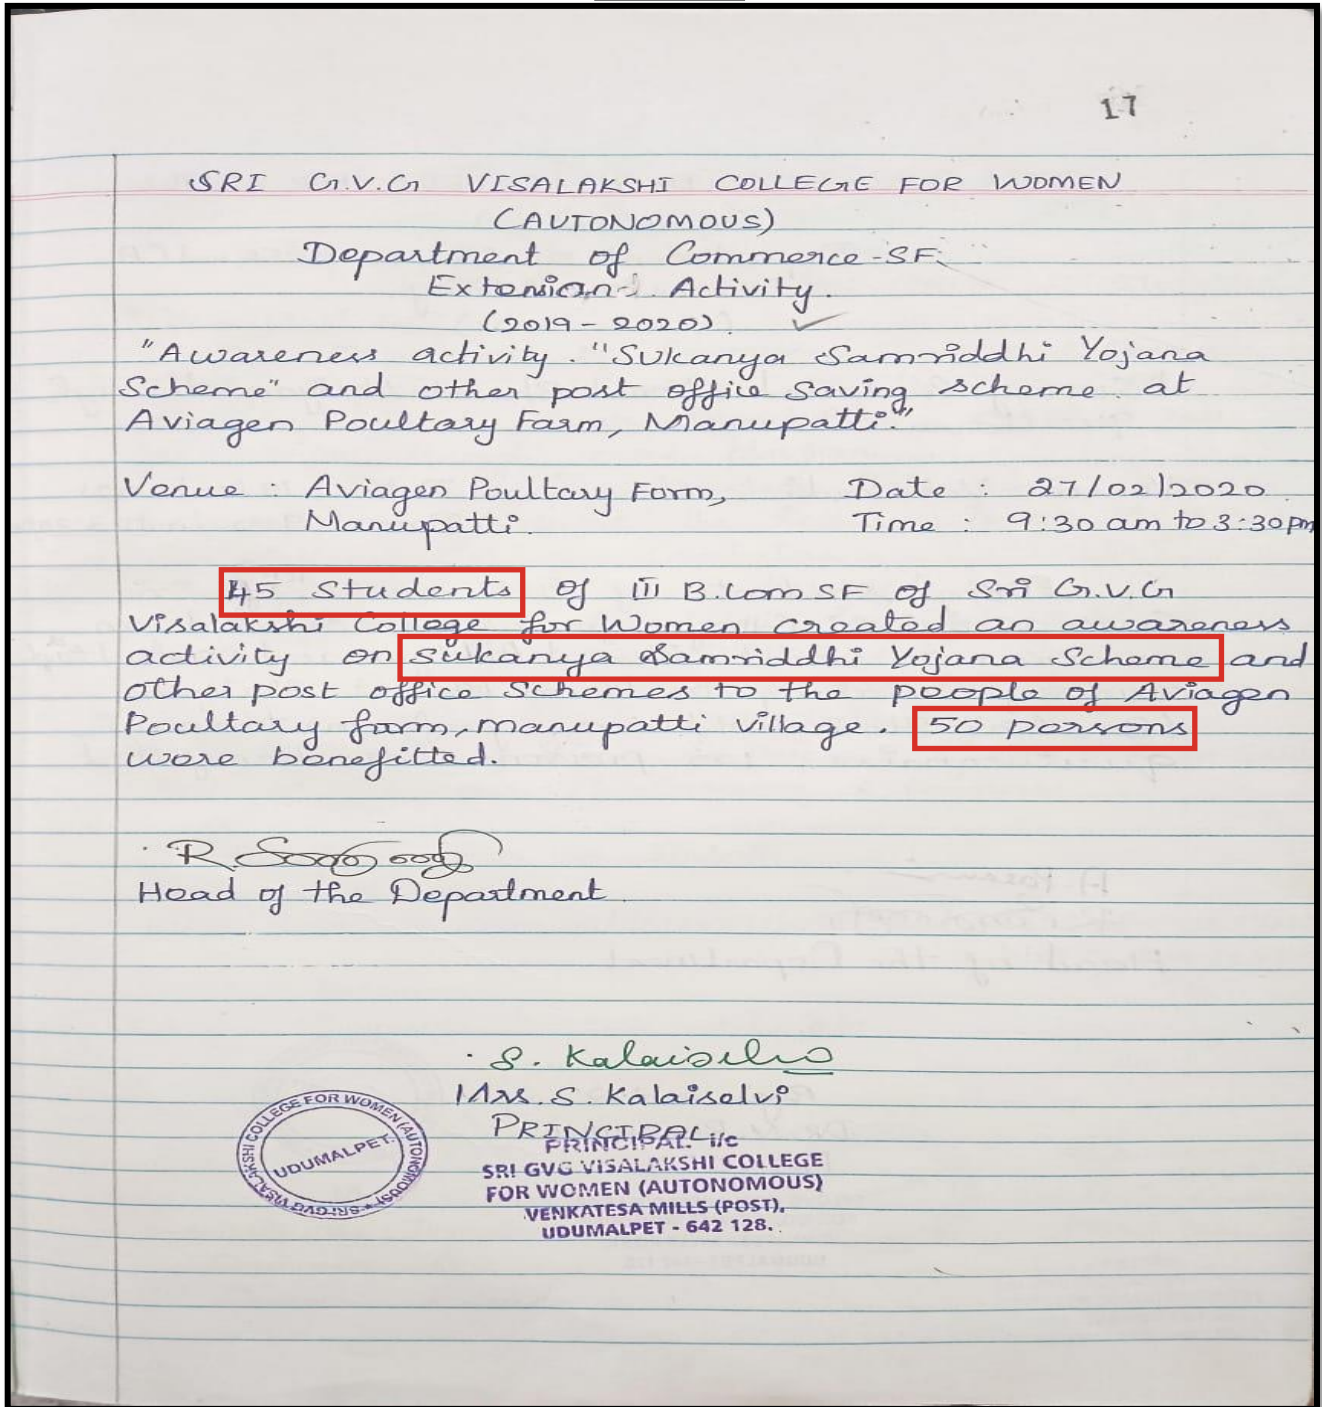 17
SRI G.V.G VISALAKSHI COLLEGE FOR WOMEN
(AUTONOMOUS)
Department of Commerce-SF.
Extension Activity.
(2019 - 2020).
"Awareness activity. "Sukanya Samriddhi Yojana
Scheme" and other post office Saving scheme at
Aviagen Poultary Farm, Manupatti."
Venue : Aviagen Poultary Form, Date : 27/02/2020.
Manupatti. Time : 9:30 am to 3:30 pm
45 Students of III B.Com SF of Sri G.V.G
Visalakshi College for Women created an awareness
activity on Sukanya Samriddhi Yojana Scheme and
other post office Schemes to the people of Aviagen
Poultary farm, manupatti village. 50 persons
were benefitted.
Head of the Department.
S. Kalaiselvi
Mrs. S. Kalaiselvi
PRINCIPAL
PRINCIPAL i/c
SRI GVG VISALAKSHI COLLEGE
FOR WOMEN (AUTONOMOUS)
VENKATESA MILLS (POST).
UDUMALPET - 642 128.
SRI GVG VISALAKSHI COLLEGE FOR WOMEN (AUTONOMOUS)
UDUMALPET.